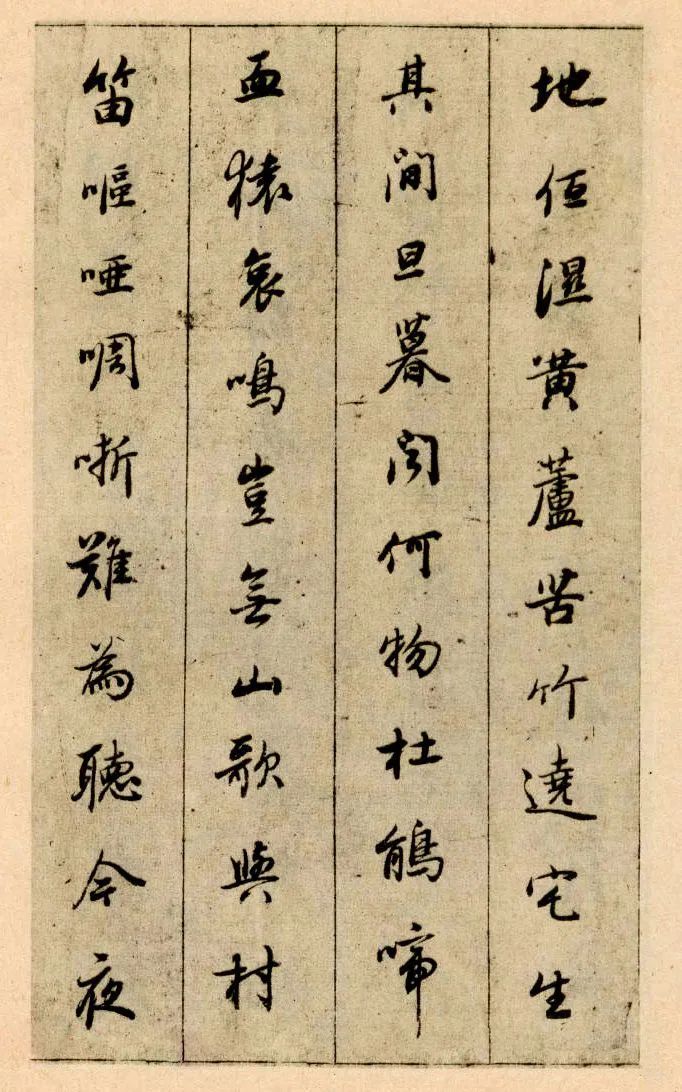 地伍濕黃蘆苦竹遶宅生
其間旦暮聞何物杜鵑啼
血猿哀鳴豈無山歌與村
笛嘔啞啁哳難為聽今夜